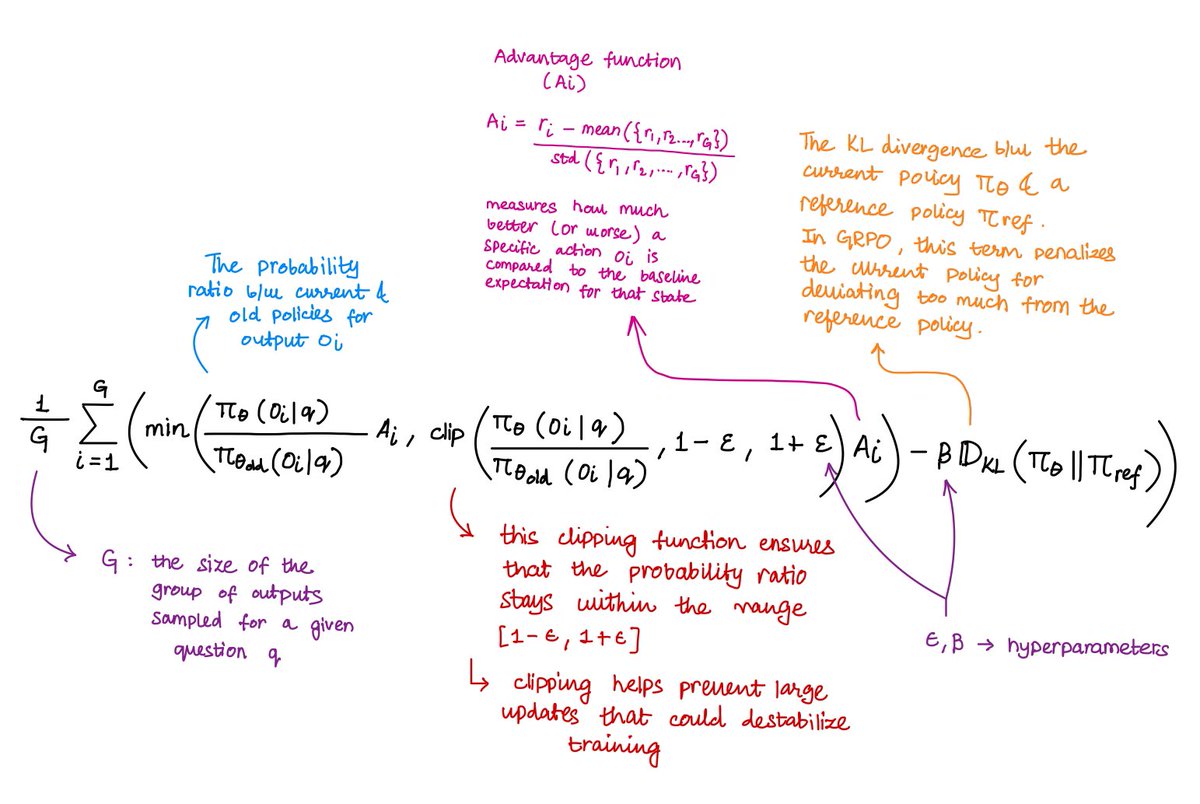 Advantage function
(Ai)
Ai = ri − mean({r1,r2...,rG}) / std({r1,r2,....,rG})
measures how much
better (or worse) a
specific action oi is
compared to the baseline
expectation for that state
The KL divergence b/w the
current policy πθ & a
reference policy πref.
In GRPO, this term penalizes
the current policy for
deviating too much from the
reference policy.
The probability
ratio b/w current &
old policies for
output oi
1/G ∑ i=1 G ( min ( πθ(oi|q) / πθold(oi|q) Ai , clip ( πθ(oi|q) / πθold(oi|q) , 1 − ε , 1 + ε ) Ai ) − β 𝔻KL (πθ || πref) )
G : the size of the
group of outputs
sampled for a given
question q
this clipping function ensures
that the probability ratio
stays within the range
[1−ε, 1+ε]
↳ clipping helps prevent large
updates that could destabilize
training
ε, β → hyperparameters